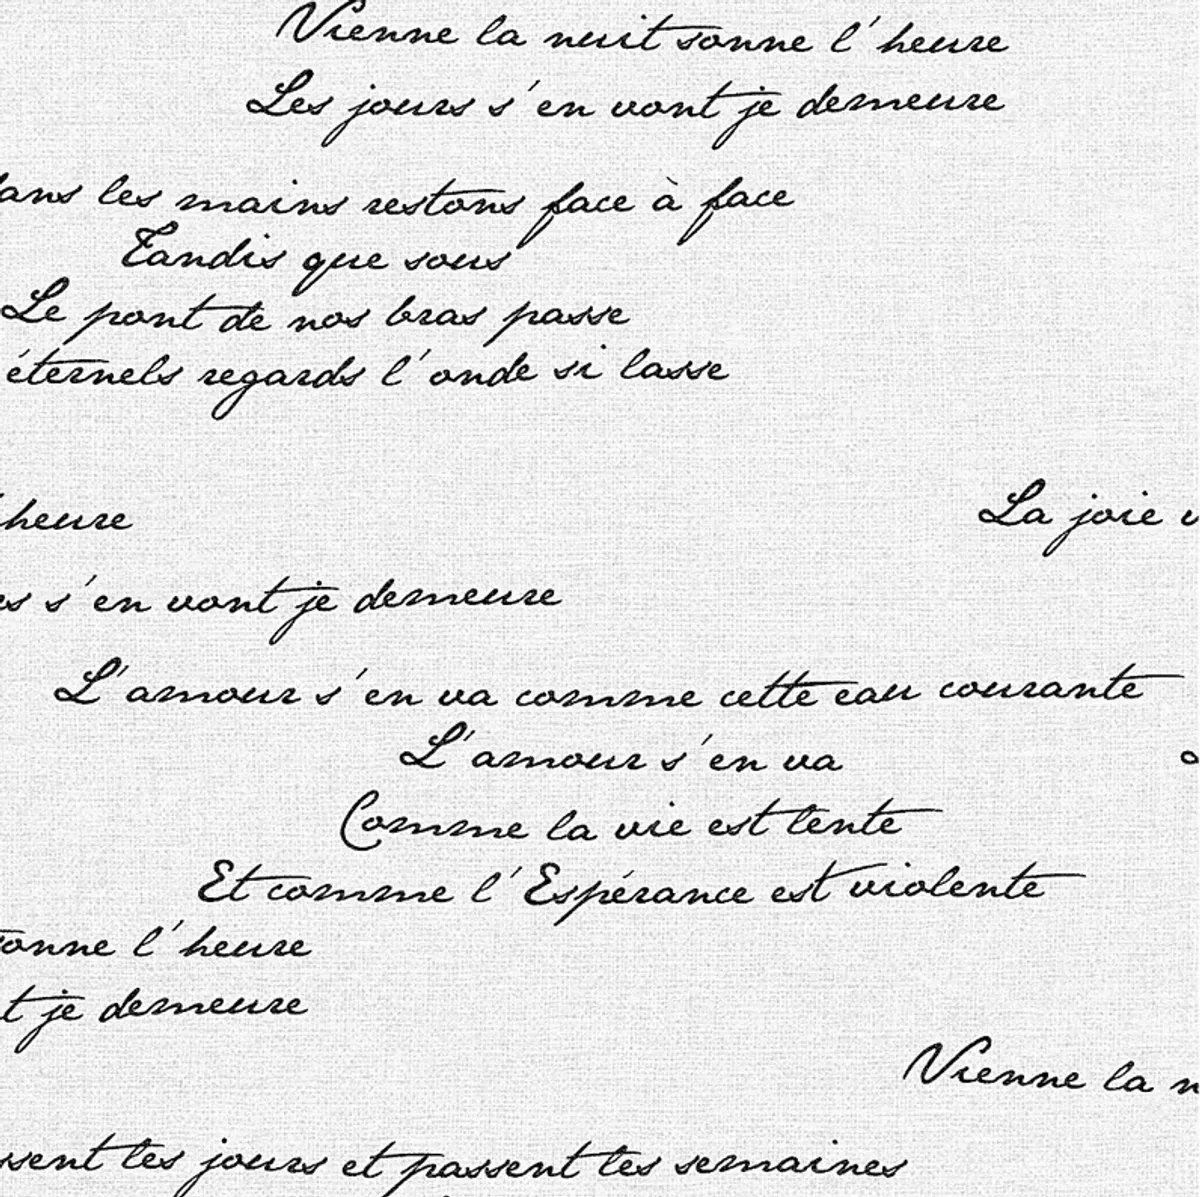 Vienne la nuit sonne l'heure
Les jours s'en vont je demeure
dans les mains restons face à face
Tandis que sous
Le pont de nos bras passe
éternels regards l'onde si lasse
l'heure
La joie v
es s'en vont je demeure
L'amour s'en va comme cette eau courante
L'amour s'en va
Comme la vie est lente
Et comme l'Espérance est violente
sonne l'heure
t je demeure
Vienne la n
ssent les jours et passent les semaines